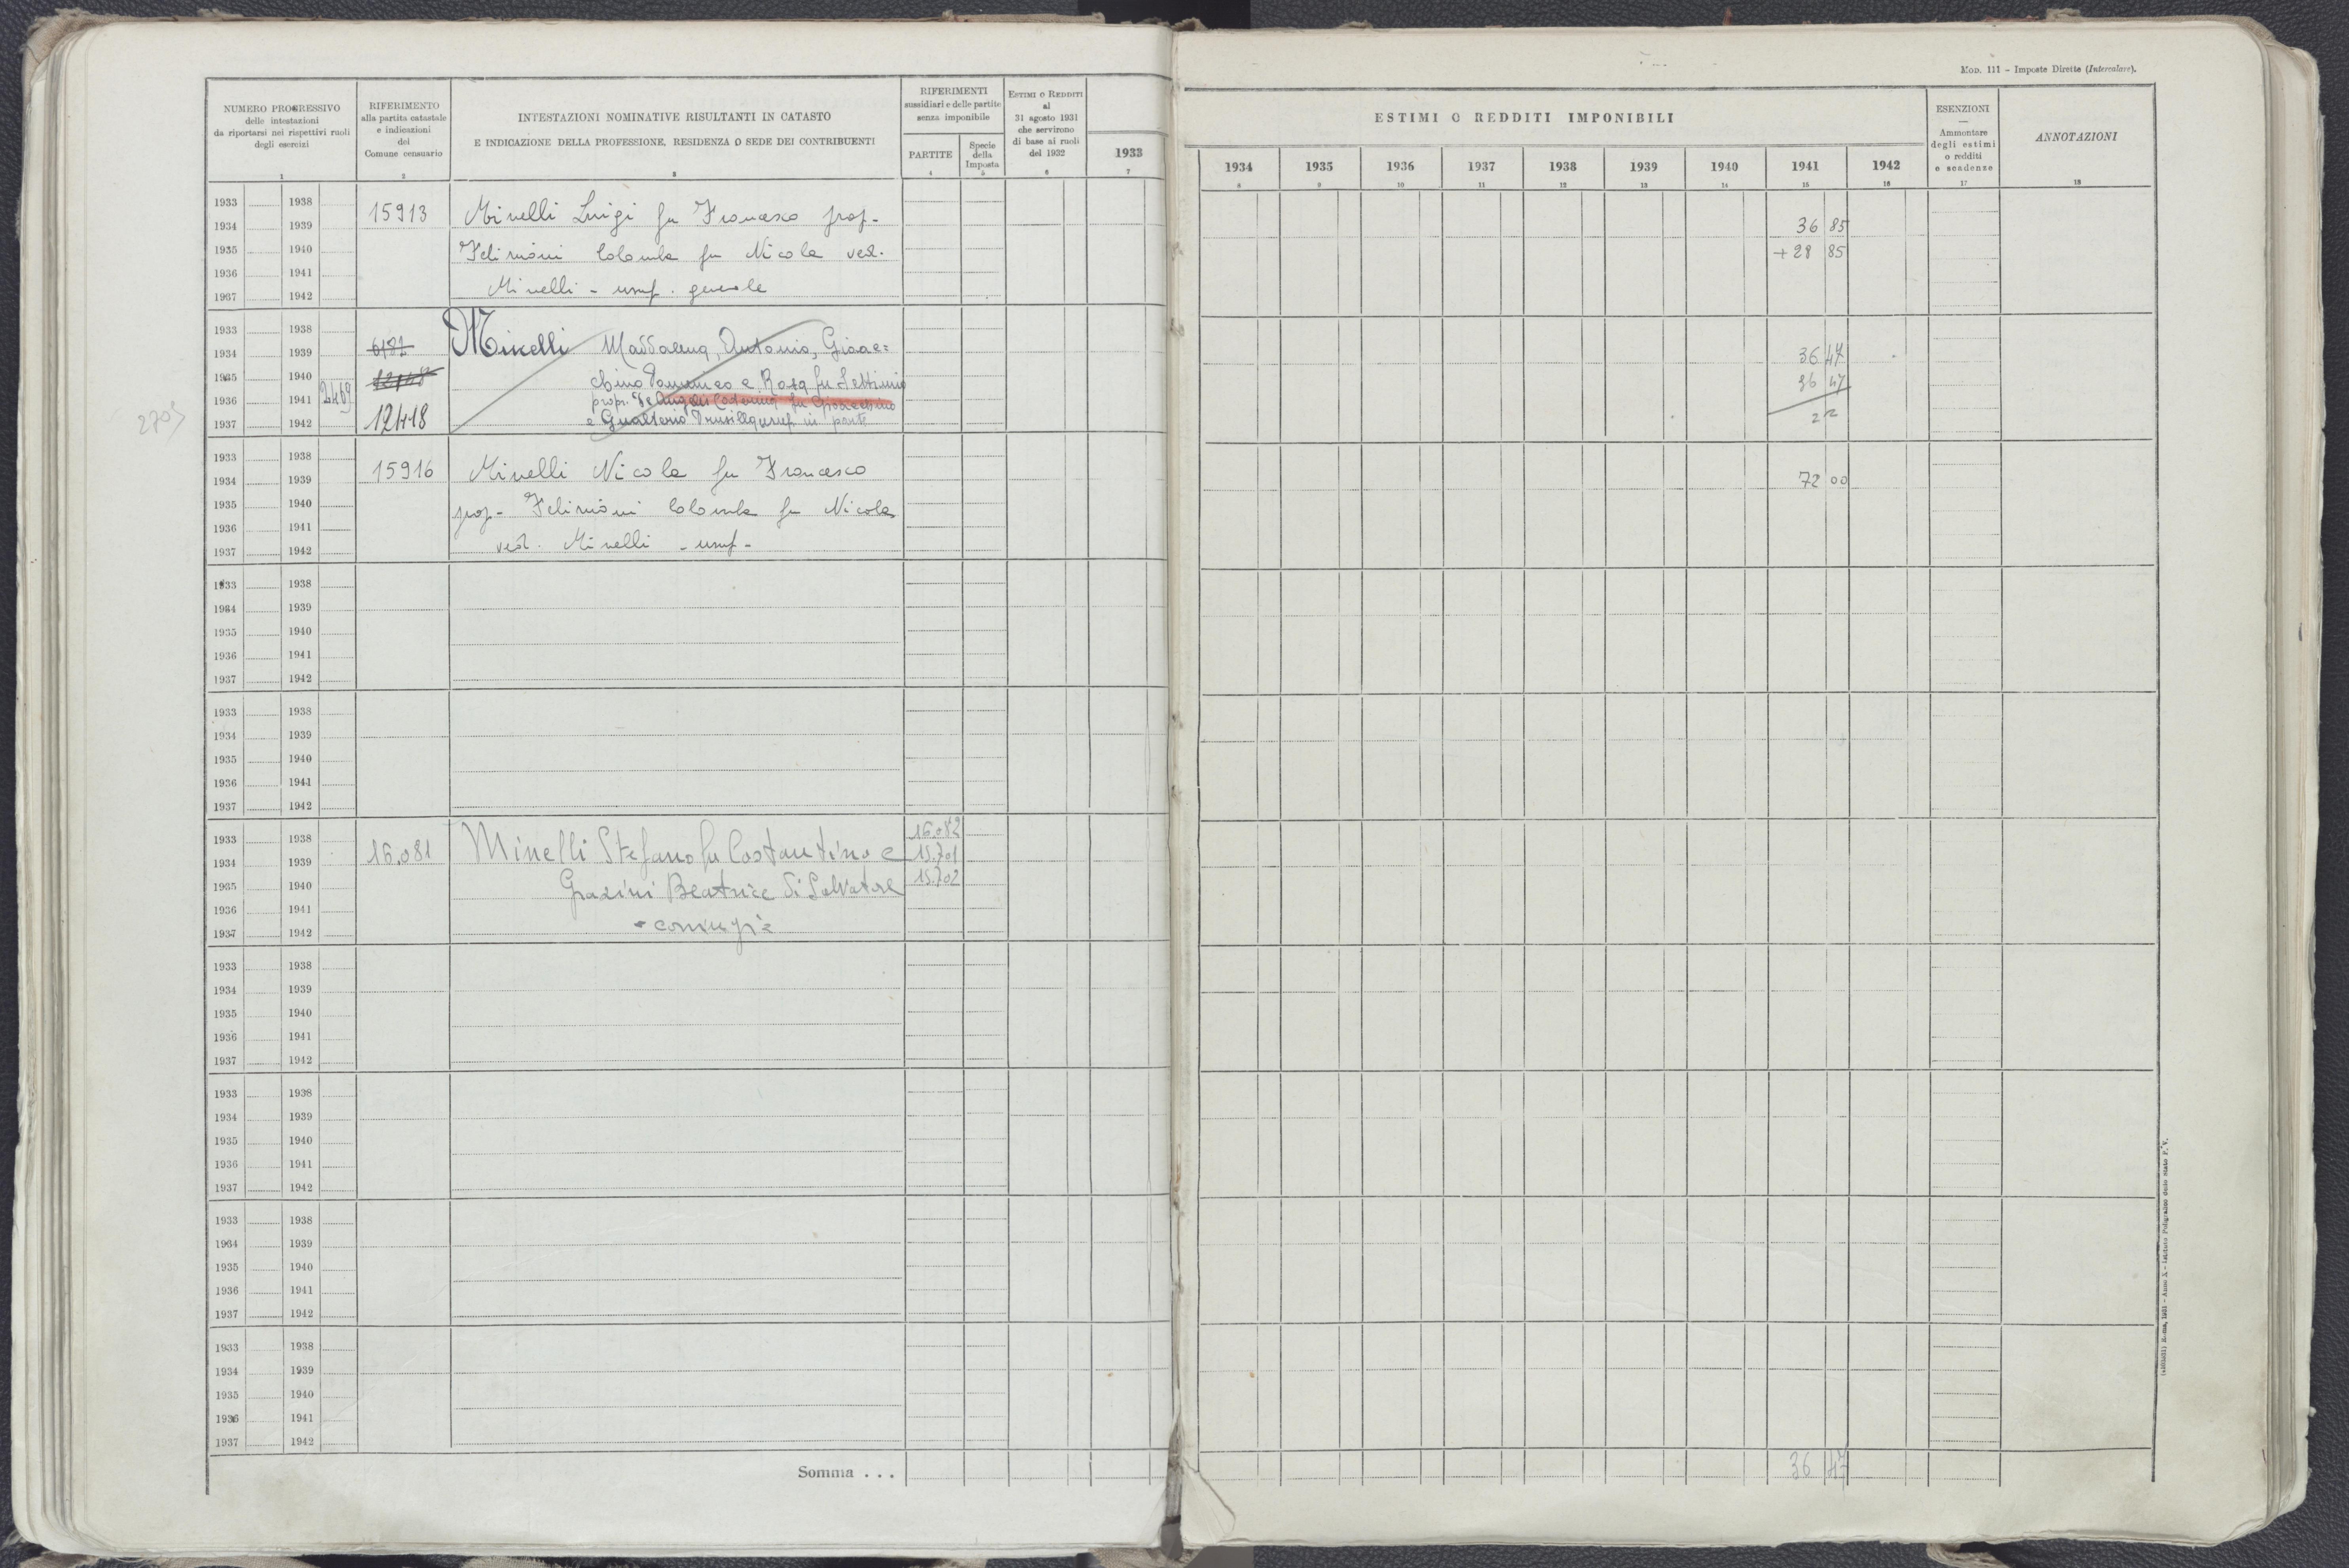 MOD. 111 - Imposte Dirette (Intercalare).
NUMERO PROGRESSIVO
delle intestazioni
da riportarsi nei rispettivi ruoli
degli esercizi
1
RIFERIMENTO
alla partita catastale
e indicazioni
del
Comune censuario
2
INTESTAZIONI NOMINATIVE RISULTANTI IN CATASTO
E INDICAZIONE DELLA PROFESSIONE, RESIDENZA O SEDE DEI CONTRIBUENTI
3
RIFERIMENTI
sussidiari e delle partite
senza imponibile
PARTITE
4
Specie
della
Imposta
5
ESTIMI O REDDITI
al
31 agosto 1931
che servirono
di base ai ruoli
del 1932
6
1933
7
ESTIMI O REDDITI IMPONIBILI
1934 1935 1936 1937 1938 1939 1940 1941 1942
8 9 10 11 12 13 14 15 16
ESENZIONI
—
Ammontare
degli estimi
o redditi
e scadenze
17
ANNOTAZIONI
18
1933 1938 15913 Minelli Luigi fu Francesco prop-
1934 1939 36 85
1935 1940 Colomba fu Nicola ved. + 28 85
1936 1941
1937 1942 Minelli - usuf. generale
1933 1938
1934 1939 6182 Minelli Maddalena, Antonio, Gioac= 36 47
1935 1940 chino Domenico e Rosa fu Settimio 36 47
1936 1941 2469 propr. De Angelis Caterina fu Gioacchino
1937 1942 12418 e Gualterio Drusilla usuf in parte 22
2705
1933 1938
1934 1939 15916 Minelli Nicola fu Francesco 72 00
1935 1940 prop- Colomba fu Nicola
1936 1941
1937 1942 ved. Minelli - usuf-
1933 1938
1934 1939
1935 1940
1936 1941
1937 1942
1933 1938
1934 1939
1935 1940
1936 1941
1937 1942
1933 1938 16.082
1934 1939 16.081 Minelli Stefano fu Costantino e 15.701
1935 1940 Grazini Beatrice di Salvatore 15.702
1936 1941
1937 1942 - coniugi =
1933 1938
1934 1939
1935 1940
1936 1941
1937 1942
1933 1938
1934 1939
1935 1940
1936 1941
1937 1942
1933 1938
1934 1939
1935 1940
1936 1941
1937 1942
1933 1938
1934 1939
1935 1940
1936 1941
1937 1942
Somma . . . 36 47
Roma, 1931 - Anno X - Istituto Poligrafico dello Stato P. V.